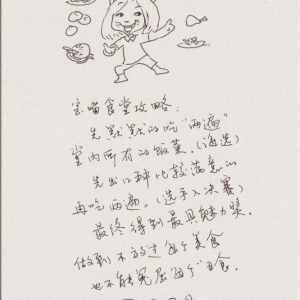 宝喵食堂攻略：
先默默的吃“两遍”
堂内所有的饭菜.(海选)
先出几种比较满意的
再吃两遍。(选手入决赛)
最终得到最具魅力奖.
做到不放过每个美食
也不能冤屈每个“日食.